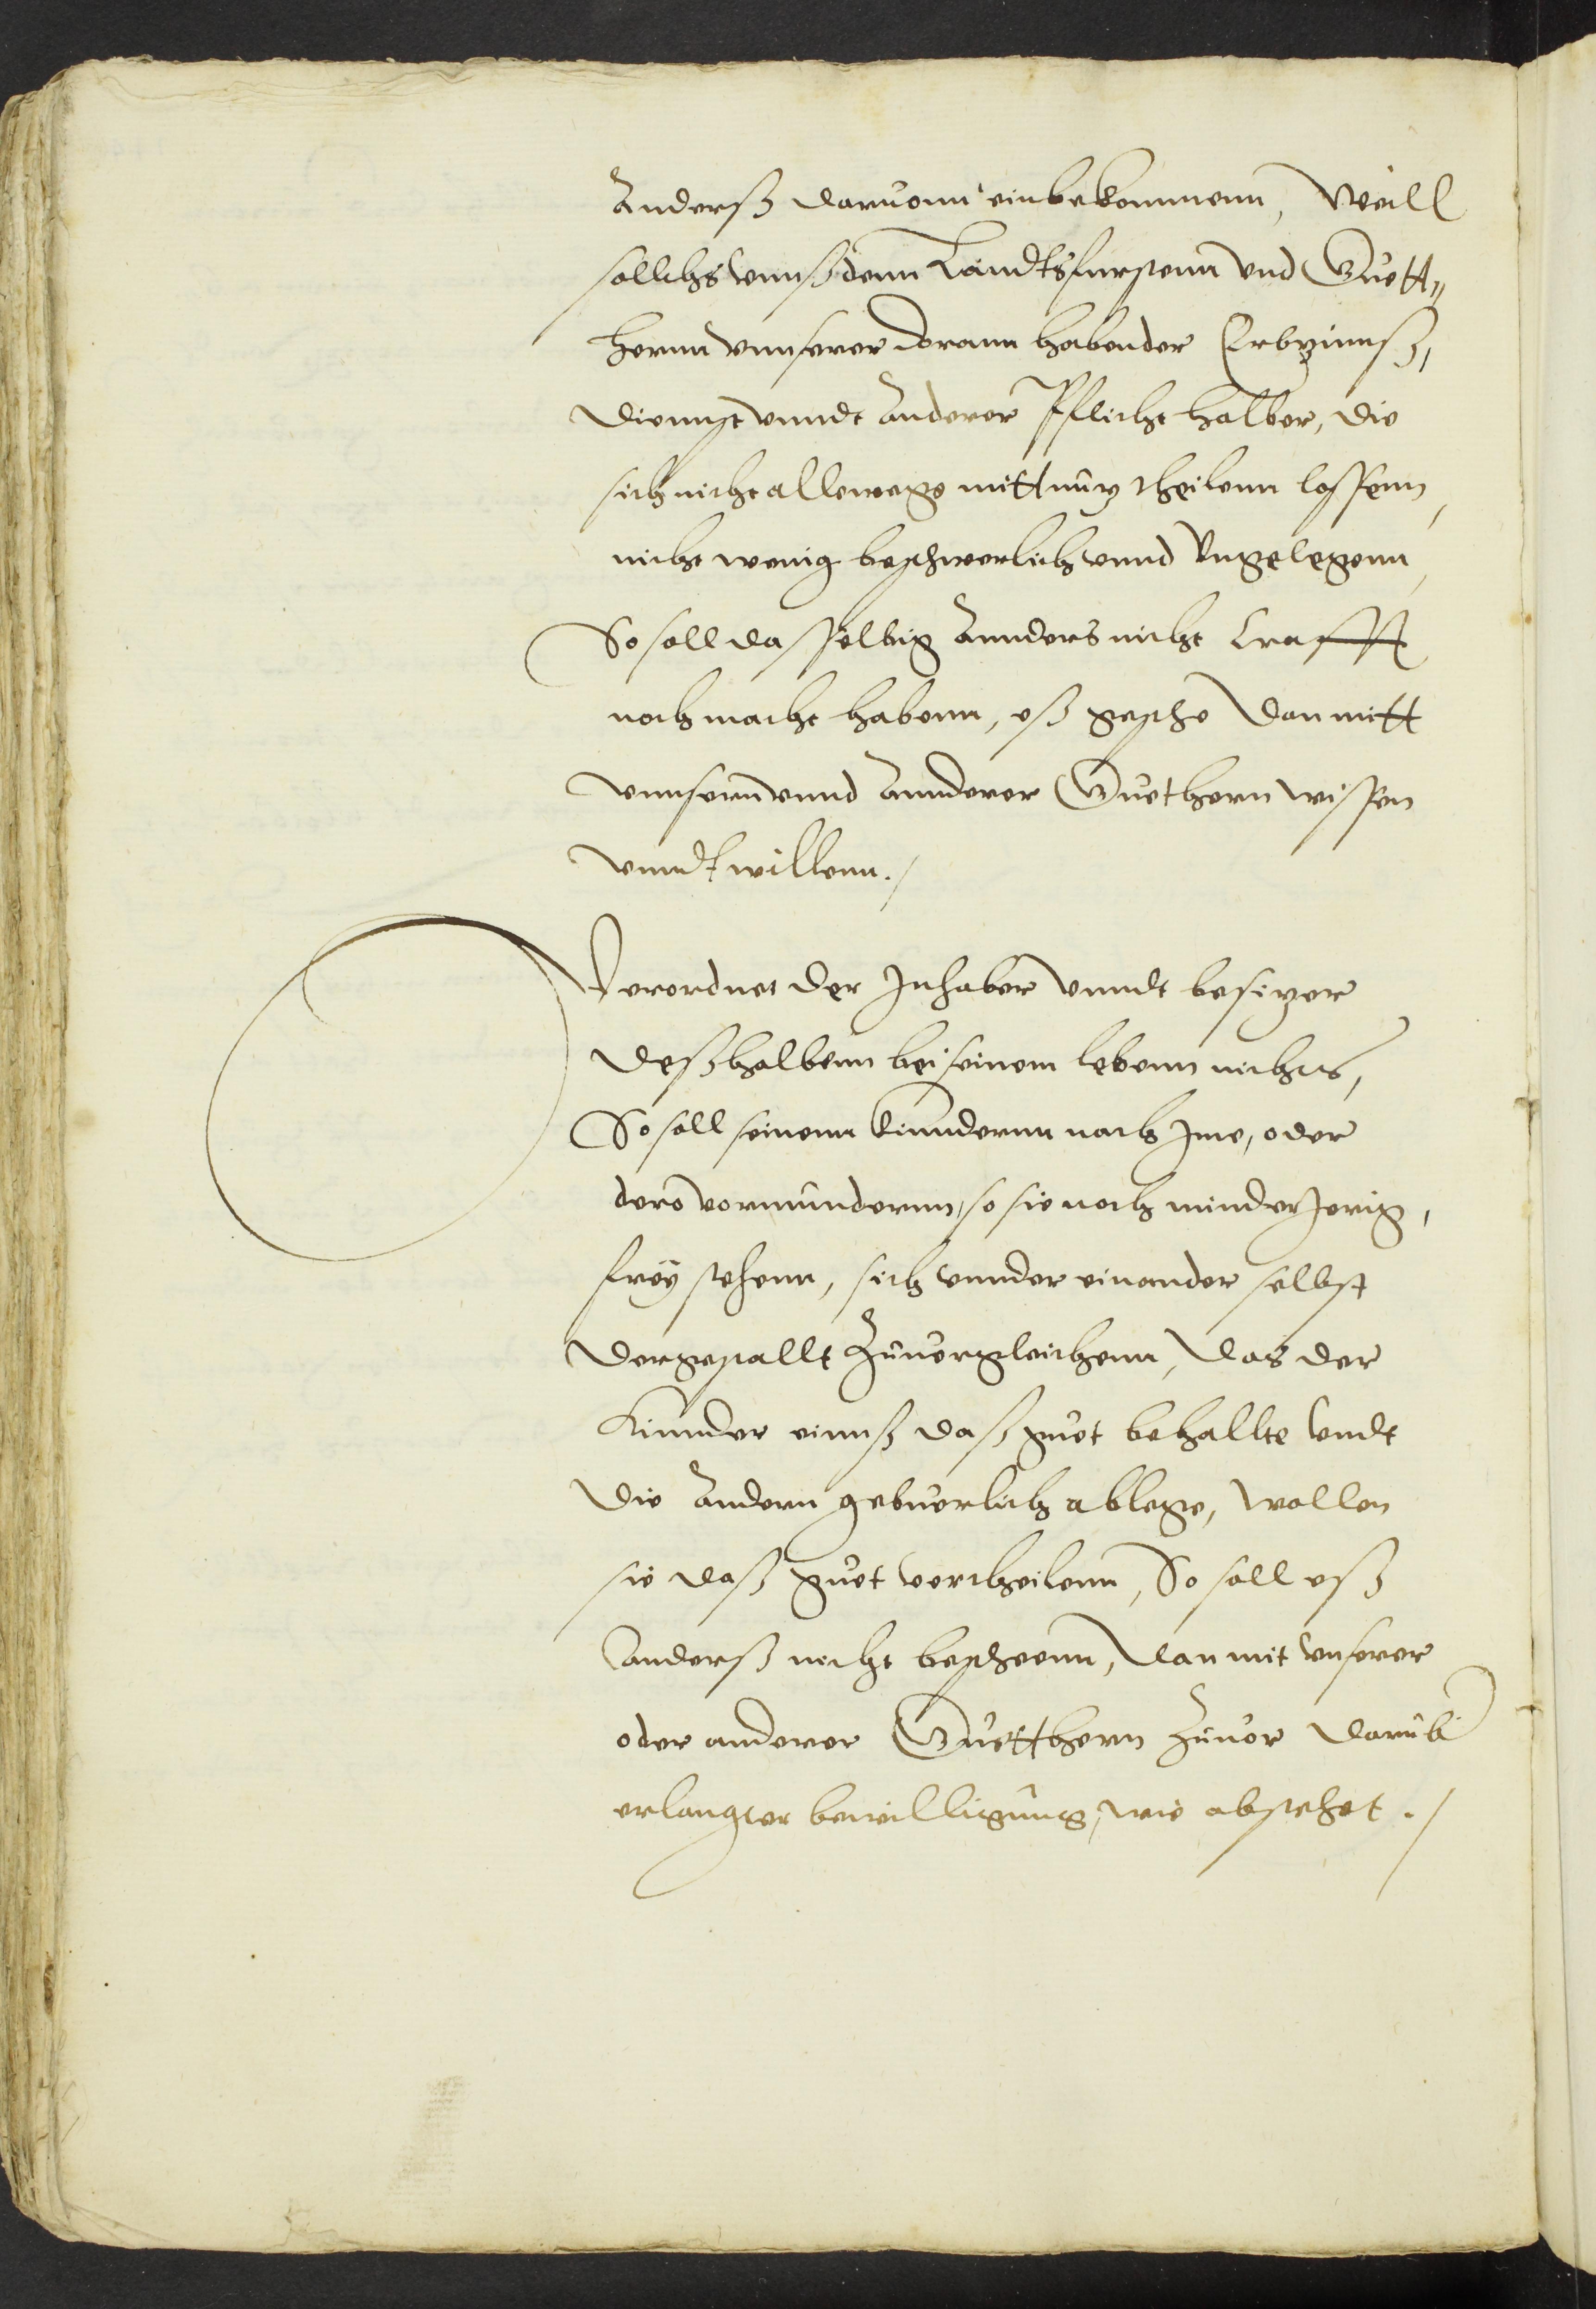 Anderß daruonn einbekommenn, Weill
sollichs vnnß denn Landtsfursten̄ vnd Guett„
herrnn vnnserer dorann habender Erbzinnß,
diennst vnndt Anderer Pflicht halber, die
sich nicht allewege mitt nuz theilenn lassenn,
nicht wenig beschwerlich vnnd Vngelegenn,
So soll dasselbig Annders nicht Crafft
noch macht habenn, eß geschee dan mitt
vnnsern vnnd Annderer Guethern wissen
vnndt willenn./
Verordnet der Inhaber vnndt besizer
deßhalbenn bei seinem lebenn nichts,
So soll seinenn kinndernn nach Ime, oder
dero vormundernn, so sie noch minderJerig,
frey stehenn, sich vnnder einander selbst
dergestallt Zuuergleichenn, das der
Kinnder einnß daß guet behallte vndt
die Andern geburlich ablege, wollen
sie daß guet vertheilenn, So soll eß
anderß nicht bescheenn, dan mit vnserer
oder anderer Guetthern Zuuor darub
erlangter bewilligung, wie obstehet ./